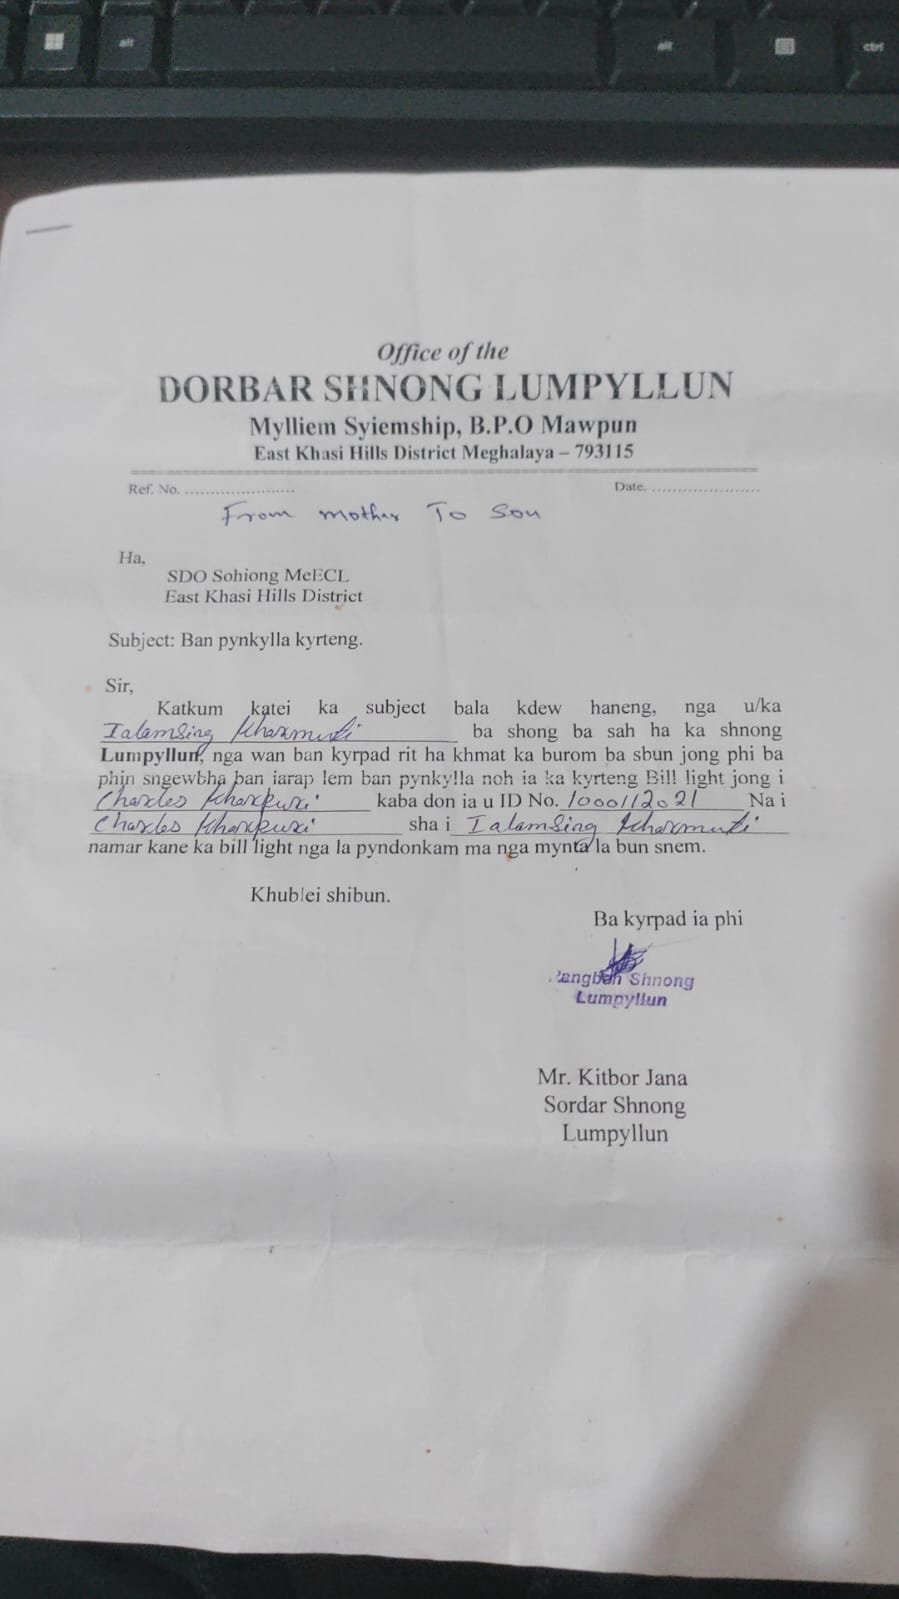 alt
alt
ctrl
Office of the
DORBAR SHNONG LUMPYLLUN
Mylliem Syiemship, B.P.O Mawpun
East Khasi Hills District Meghalaya – 793115
Ref. No. ...................... Date. .....................
From mother To Son
Ha,
SDO Sohiong MeECL
East Khasi Hills District
Subject: Ban pynkylla kyrteng.
Sir,
Katkum katei ka subject bala kdew haneng, nga u/ka
Ialamsing Kharmuti ba shong ba sah ha ka shnong
Lumpyllun, nga wan ban kyrpad rit ha khmat ka burom ba sbun jong phi ba
phin sngewbha ban iarap lem ban pynkylla noh ia ka kyrteng Bill light jong i
Charles Kharkpuri kaba don ia u ID No. 1000112021 Na i
Charles Kharkpuri sha i Ialamsing Kharmuti
namar kane ka bill light nga la pyndonkam ma nga mynta la bun snem.
Khublei shibun.
Ba kyrpad ia phi
Rangbah Shnong
Lumpyllun
Mr. Kitbor Jana
Sordar Shnong
Lumpyllun